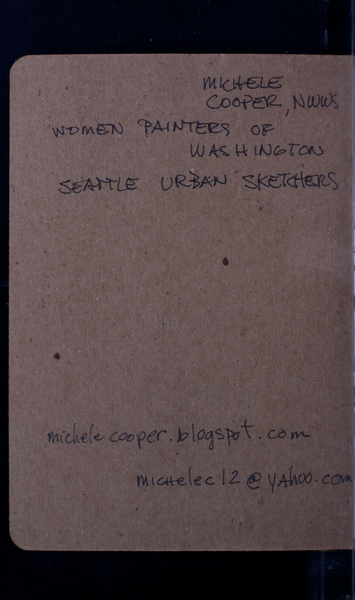 MICHELE
COOPER, NWWS
WOMEN PAINTERS OF
WASHINGTON
SEATTLE URBAN SKETCHERS
michelecooper.blogspot.com
michelec12@yahoo.com